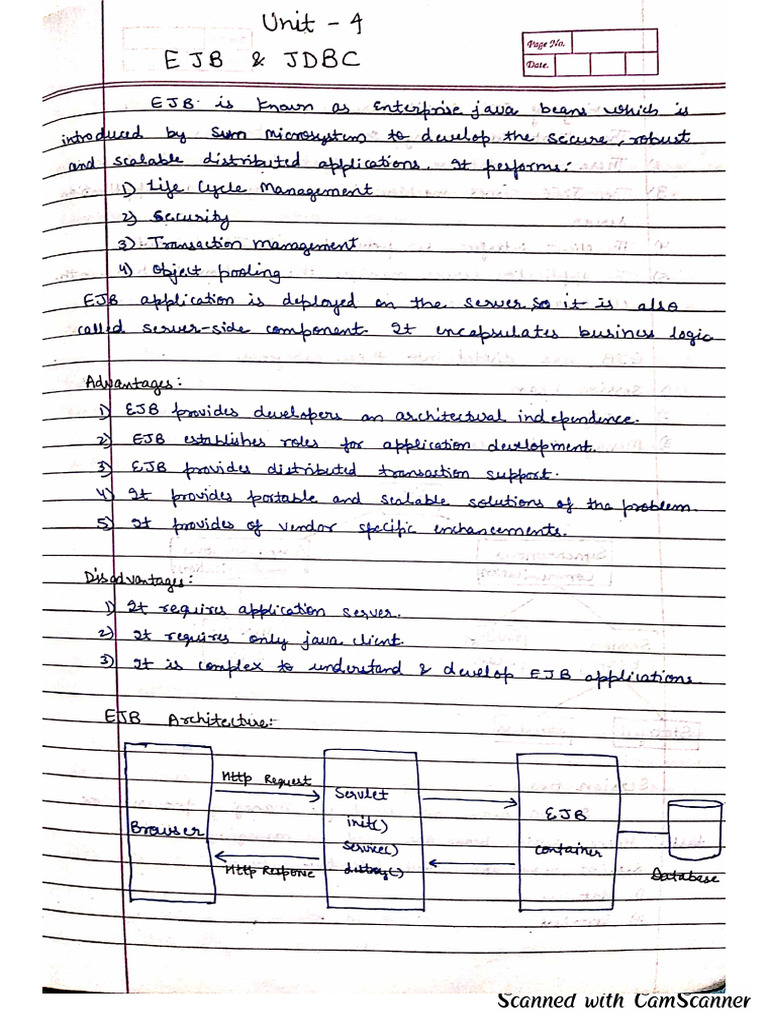 Unit - 4
EJB & JDBC
Page No.
Date.
EJB is known as enterprise java beans which is
introduced by Sun microsystem to develop the secure, robust
and scalable distributed applications. It performs:
1) Life Cycle Management
2) Security
3) Transaction management
4) Object pooling
EJB application is deployed on the server, so it is also
called server-side component. It encapsulates business logic
Advantages:
1) EJB provides developers an architectual independence.
2) EJB establishes roles for application development.
3) EJB provides distributed transaction support.
4) It provides portable and scalable solutions of the problem.
5) It provides of vendor specific enchancements.
Disadvantages:
1) It requires application server.
2) It requires only java client.
3) It is complex to understand & develop EJB applications.
EJB Architecture:
Http Request
Servlet
init()
EJB
Browser
service()
container
Http Response
destroy()
Database
Scanned with CamScanner